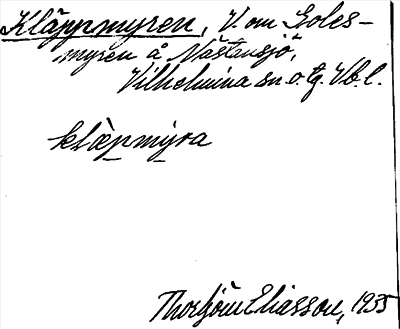 Kläppmyren, V. om Goles-
myren å Nästansjö,
Vilhelmina sn. o. tg. Vb. l.
klæpmyra
Thorbjörn Eliasson, 1935